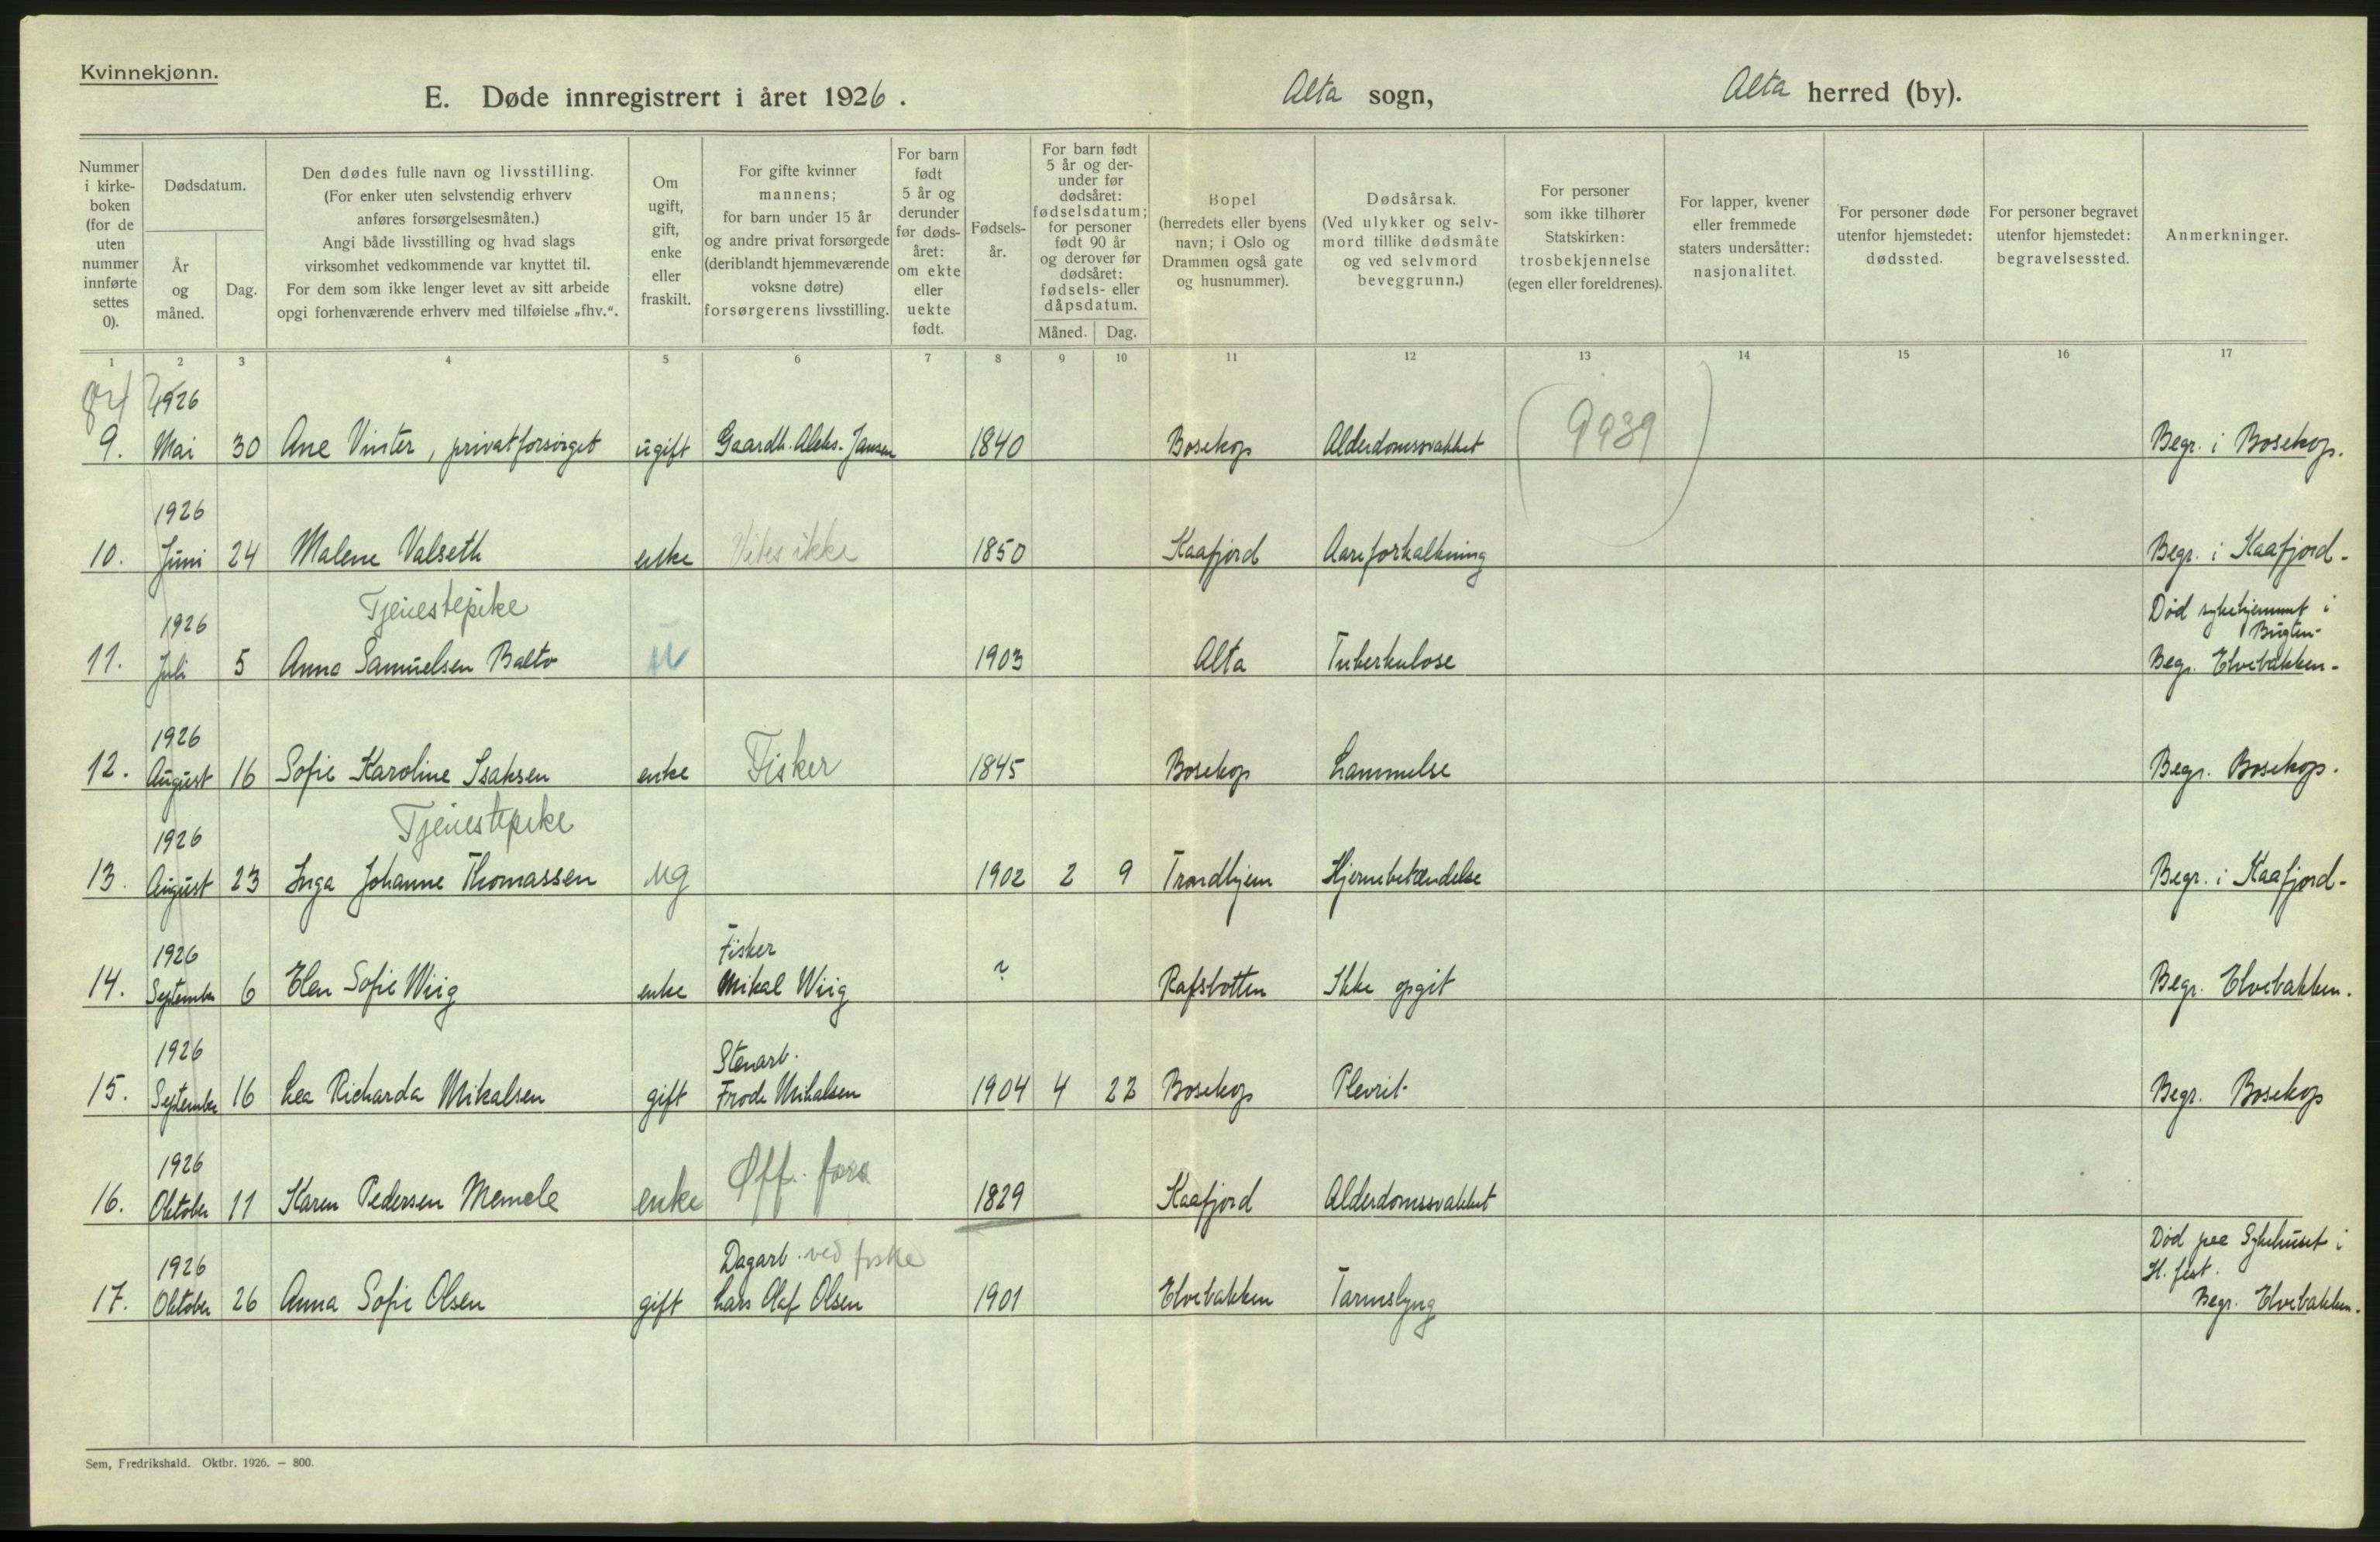 Kvinnekjønn.
E. Døde innregistrert i året 1926. Alta sogn, Alta herred (by).
Nummer i kirke- boken (for de uten nummer innførte settes 0).
Dødsdatum.
År og måned.
Dag.
Den dødes fulle navn og livsstilling.
(For enker uten selvstendig erhverv
anføres forsørgelsesmåten.)
Angi både livsstilling og hvad slags
virksomhet vedkommende var knyttet til.
For dem som ikke lenger levet av sitt arbeide
opgi forhenværende erhverv med tilføielse „fhv.“.
Om ugift, gift, enke eller fraskilt.
For gifte kvinner
mannens;
for barn under 15 år
og andre privat forsørgede
(deriblandt hjemmeværende
voksne døtre)
forsørgerens livsstilling.
For barn født 5 år og derunder før døds- året: om ekte eller uekte født.
Fødsels- år.
For barn født 5 år og der- under før dødsåret: fødselsdatum; for personer født 90 år og derover før dødsåret: fødsels- eller dåpsdatum.
Måned. Dag.
Bopel
(herredets eller byens
navn; i Oslo og
Drammen også gate
og husnummer).
Dødsårsak.
(Ved ulykker og selv-
mord tillike dødsmåte
og ved selvmord
beveggrunn.)
For personer
som ikke tilhører
Statskirken:
trosbekjennelse
(egen eller foreldrenes).
For lapper, kvener
eller fremmede
staters undersåtter:
nasjonalitet.
For personer døde
utenfor hjemstedet:
dødssted.
For personer begravet
utenfor hjemstedet:
begravelsessted.
Anmerkninger.
1 2 3 4 5 6 7 8 9 10 11 12 13 14 15 16 17
1926
9. Mai 30 Ane Vinter, privatforsörget ugift Gaardb. Aleks. Jansen 1840 Bosekop Alderdomssvakhet (9939) Begr. i Bosekop.
1926
10. Juni 24 Malene Valseth enke Vites ikke 1850 Kaafjord Aareforkalkning Begr. i Kaafjord.
Tjenestepike
1926 Död sykehjemmet i
Bugten.
11. Juli 5 Anna Samuelsen Balto u 1903 Alta Tuberkulose Begr. Elvebakken.
1926
12. August 16 Sofie Karoline Isaksen enke Fisker 1845 Bosekop Lammelse Begr. Bosekop.
Tjenestepike
1926
13. August 23 Inga Johanne Thomassen ug 1902 2 9 Trondhjem Hjernebetændelse Begr. i Kaafjord.
1926 Fisker
14. September 6 Elen Sofie Wiig enke Mikal Wiig ? Rafsbotten Ikke opgit Begr. Elvebakken.
1926 Stenarb.
15. September 16 Lea Richarda Mikalsen gift Frode Mikalsen 1904 4 22 Bosekop Plevrit Begr. Bosekop
1926
16. Oktober 11 Karen Pedersen Memele enke Off. fors 1829 Kaafjord Alderdomssvakhet
1926 Dagarb. ved fiske Död paa Sykehuset i
H. fest.
17. Oktober 26 Anna Sofie Olsen gift Lars Olaf Olsen 1901 Elvebakken Tarmslyng Begr. Elvebakken.
Sem, Fredrikshald. Oktbr. 1926. – 800.